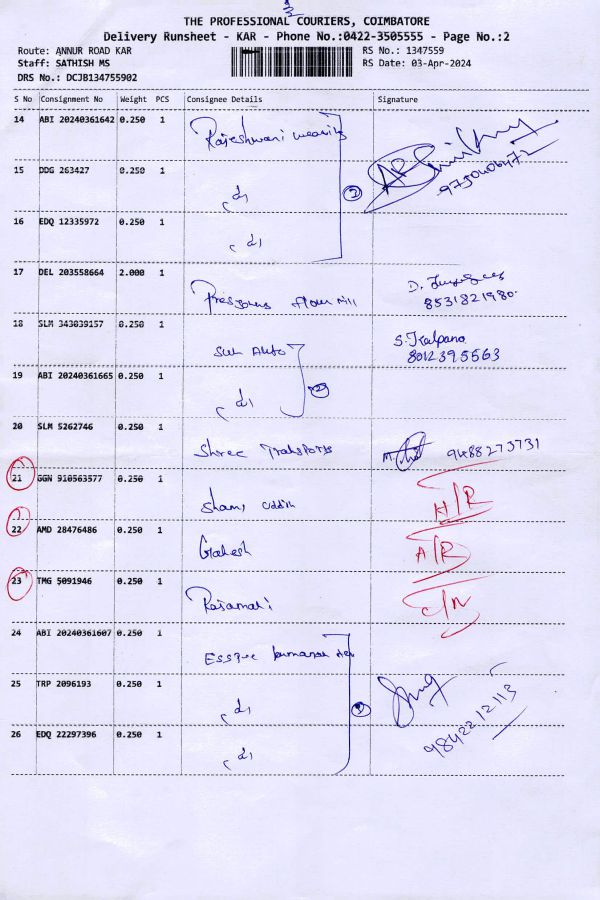 THE PROFESSIONAL COURIERS, COIMBATORE
Delivery Runsheet - KAR - Phone No.:0422-3505555 - Page No.:2
Route: ANNUR ROAD KAR RS No.: 1347559
Staff: SATHISH MS RS Date: 03-Apr-2024
DRS No.: DCJB134755902
S No Consignment No Weight PCS Consignee Details Signature
14 ABI 20240361642 0.250 1
Rajeshwari
15 DDG 263427 0.250 1
16 EDQ 12335972 0.250 1
17 DEL 203558664 2.000 1
8531821980
18 SLM 343039157 0.250 1
S. Kalpana
8012395563
19 ABI 20240361665 0.250 1
20 SLM 5262746 0.250 1
Shree Transports 9488273731
21 GGN 910563577 0.250 1
H/R
22 AMD 28476486 0.250 1
A/R
23 TMG 5091946 0.250 1
Rajamani
24 ABI 20240361607 0.250 1
25 TRP 2096193 0.250 1
26 EDQ 22297396 0.250 1
9842212113